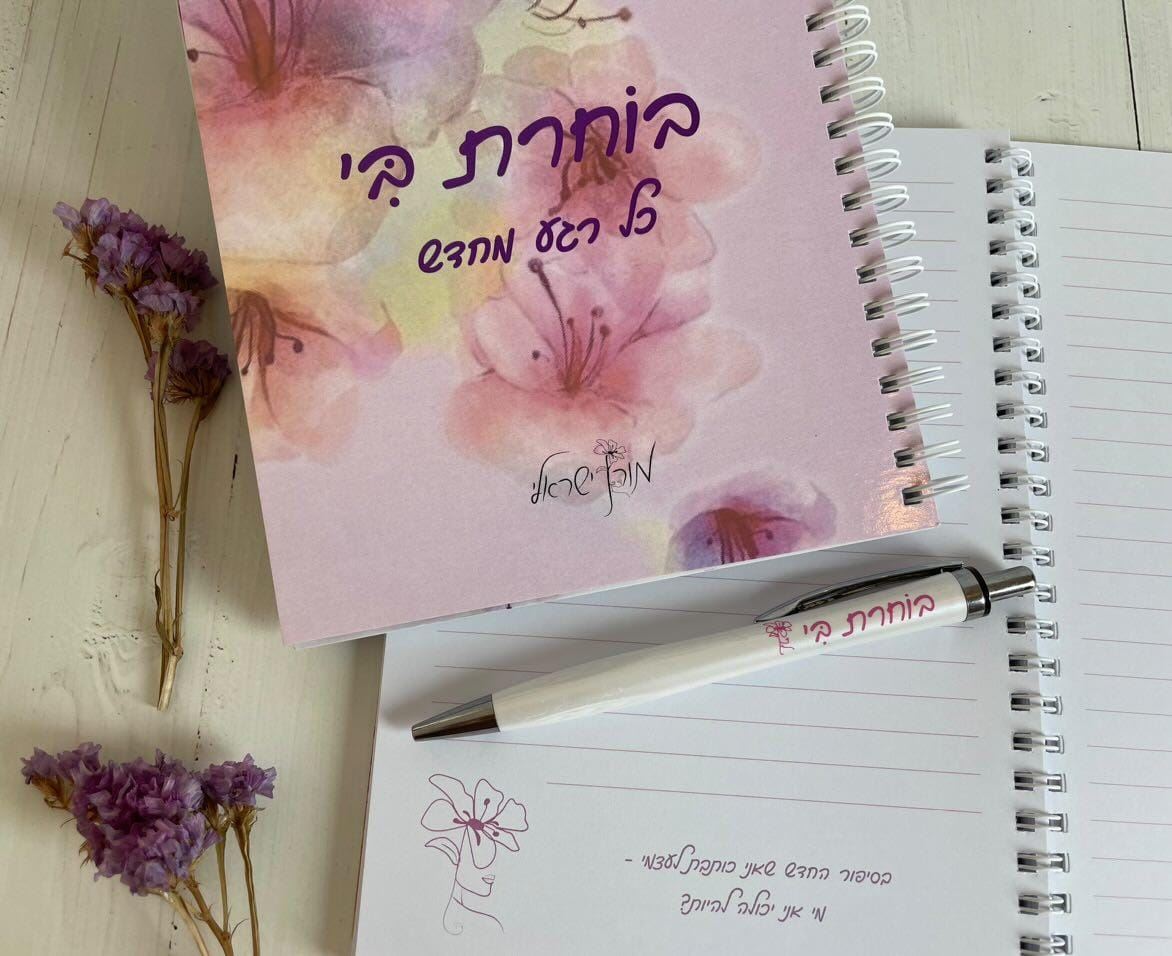 בוֹחרת בִּי
כל רגע מחדש
מורן ישראלי
בוֹחרת בִּי
בסיפור החדש שאני כותבת לעצמי -
מי אני יכולה להיות?